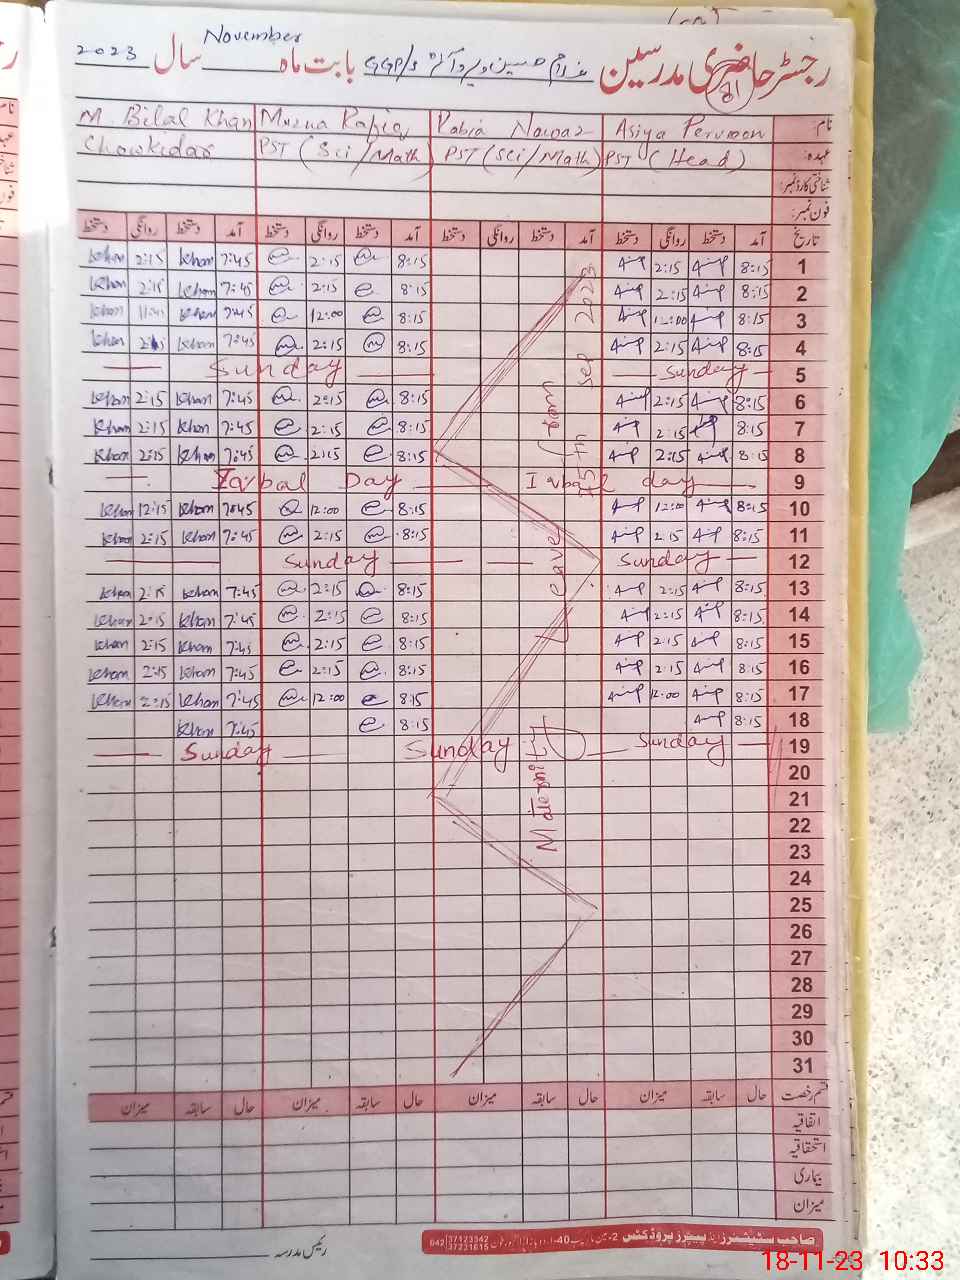 رجسٹر حاضری مدرسین
81
بابت ماہ November سال 2023
GGP/S
نام: Asiya Perveen Rabia Nawaz Muzna Rafiq M. Bilal Khan
عہدہ: PST (Head) PST (Sci/Math) PST (Sci/Math) Chowkidar
شناختی کارڈ نمبر:
فون نمبر:
تاریخ آمد دستخط روانگی دستخط آمد دستخط روانگی دستخط آمد دستخط روانگی دستخط آمد دستخط روانگی دستخط
1 8:15 2:15 8:15 2:15 7:45 Khan 2:15 Khan
2 8:15 2:15 8:15 2:15 7:45 Khan 2:15 Khan
3 8:15 12:00 8:15 12:00 7:45 Khan Khan
4 8:15 2:15 8:15 2:15 7:45 Khan Khan
5 Sunday Sunday
6 8:15 2:15 8:15 2:15 7:45 Khan 2:15 Khan
7 8:15 2:15 8:15 2:15 7:45 Khan 2:15 Khan
8 8:15 2:15 8:15 2:15 7:45 Khan 2:15 Khan
9 Iqbal day Iqbal Day
10 8:15 12:00 8:15 12:00 7:45 Khan 12:15 Khan
11 8:15 2:15 8:15 2:15 7:45 Khan 2:15 Khan
12 Sunday Sunday
13 8:15 2:15 8:15 2:15 7:45 Khan 2:15 Khan
14 8:15 2:15 8:15 2:15 7:45 Khan 2:15 Khan
15 8:15 2:15 8:15 2:15 7:45 Khan 2:15 Khan
16 8:15 2:15 8:15 2:15 7:45 Khan 2:15 Khan
17 8:15 12:00 8:15 12:00 7:45 Khan 2:15 Khan
18 8:15 8:15 7:45 Khan
19 Sunday Sunday Sunday
20
21
22
23
24
25
26
27
28
29
30
31
Maternity Leave from
2023
قسم رخصت حال سابقہ میزان حال سابقہ میزان حال سابقہ میزان حال سابقہ میزان
اتفاقیہ
استحقاقیہ
بیماری
میزان
رئیس مدرسہ
صاحب سٹیشنرز اینڈ پیپرز پروڈکٹس
042 37123342
37231615
18-11-23 10:33